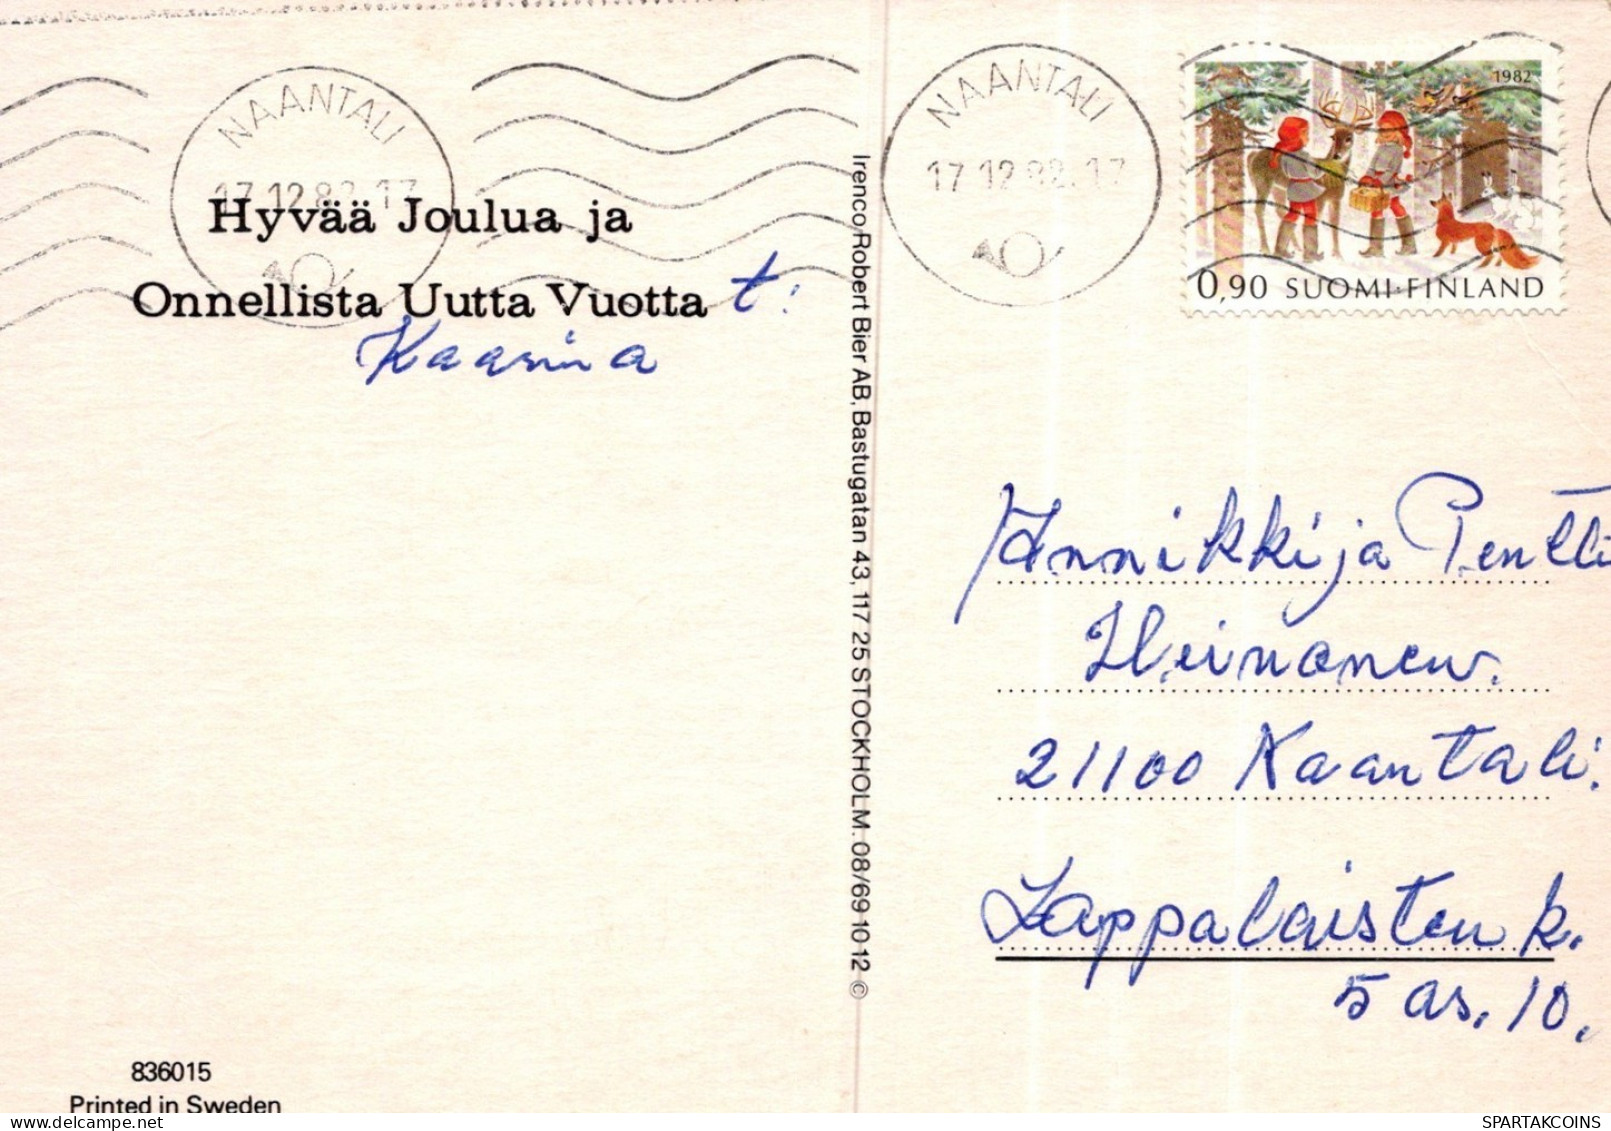 NAANTALI
17.12.82.17
Hyvää Joulua ja
Onnellista Uutta Vuotta t:
Kaarina
Irenco Robert Bier AB, Bastugatan 43, 117 25 STOCKHOLM. 08/69 10 12 ©
NAANTALI
17.12.82.17
1982
0,90 SUOMI·FINLAND
Annikki ja Pentti
Heinonen.
21100 Naantali.
Lappalaisten k.
5 as. 10.
836015
Printed in Sweden
SPARTAKCOINS
delcampe.net